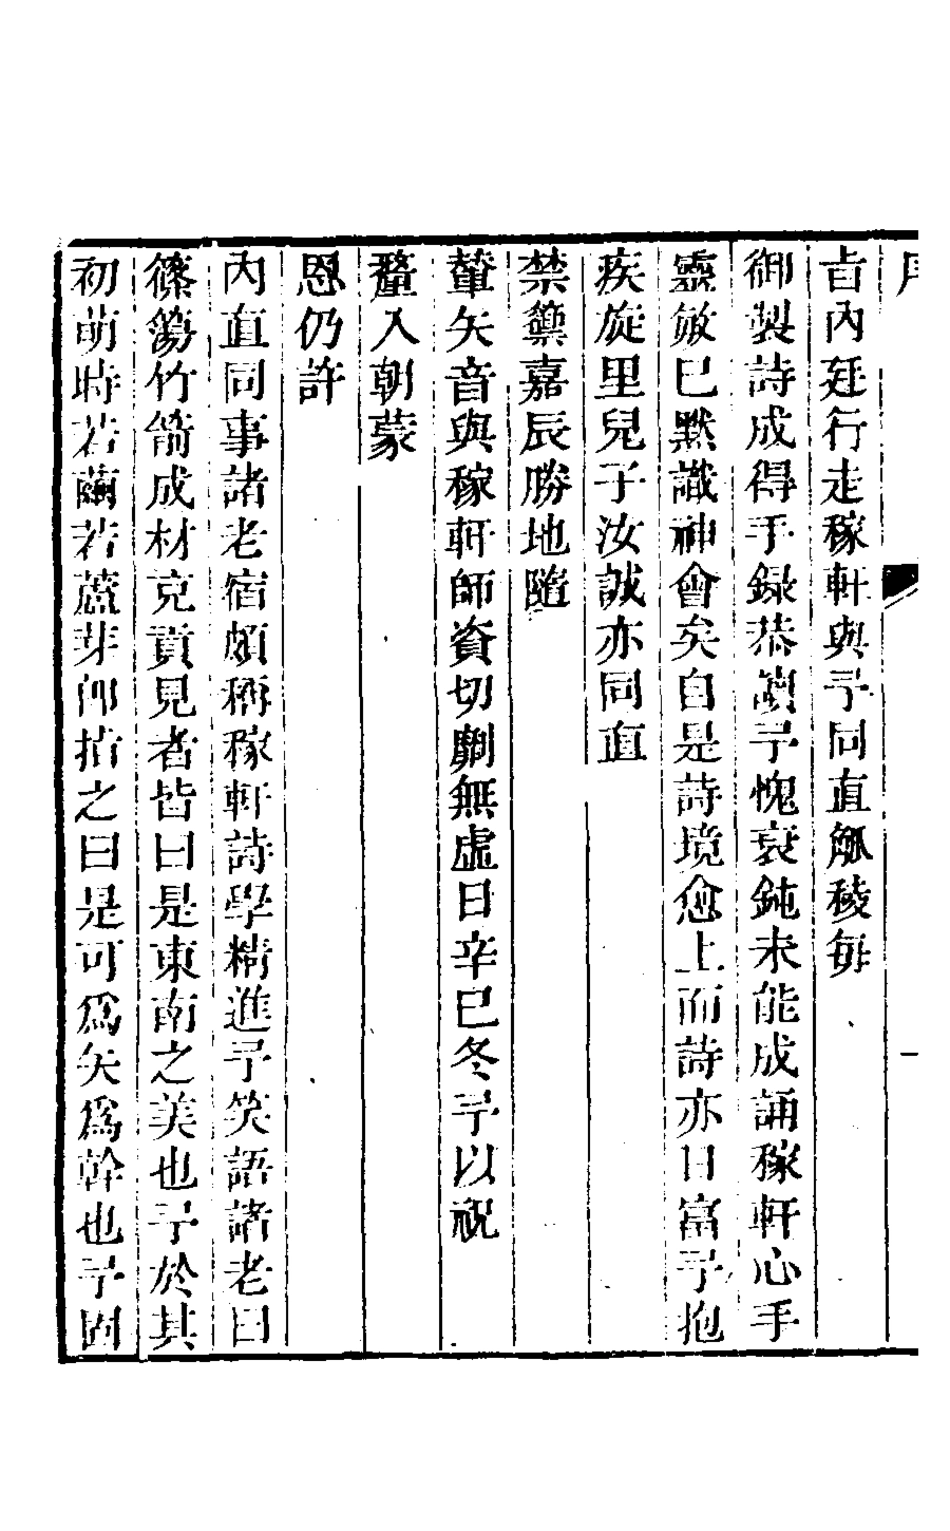 旨內廷行走稼軒與予同直觚稜每
御製詩成得手錄恭讀予愧衰鈍未能成誦稼軒心手
靈敏已默識神會矣自是詩境愈上而詩亦日富予抱
疾旋里兒子汝誠亦同直
禁籞嘉辰勝地隨
輦矢音與稼軒師資切劘無虛日辛巳冬予以祝
釐入朝蒙
恩仍許
內直同事諸老宿頗稱稼軒詩學精進予笑語諸老曰
篠簜竹箭成材克貢見者皆曰是東南之美也予於其
初萌時若繭若蘆芽卽拈之曰是可爲矢爲幹也予固